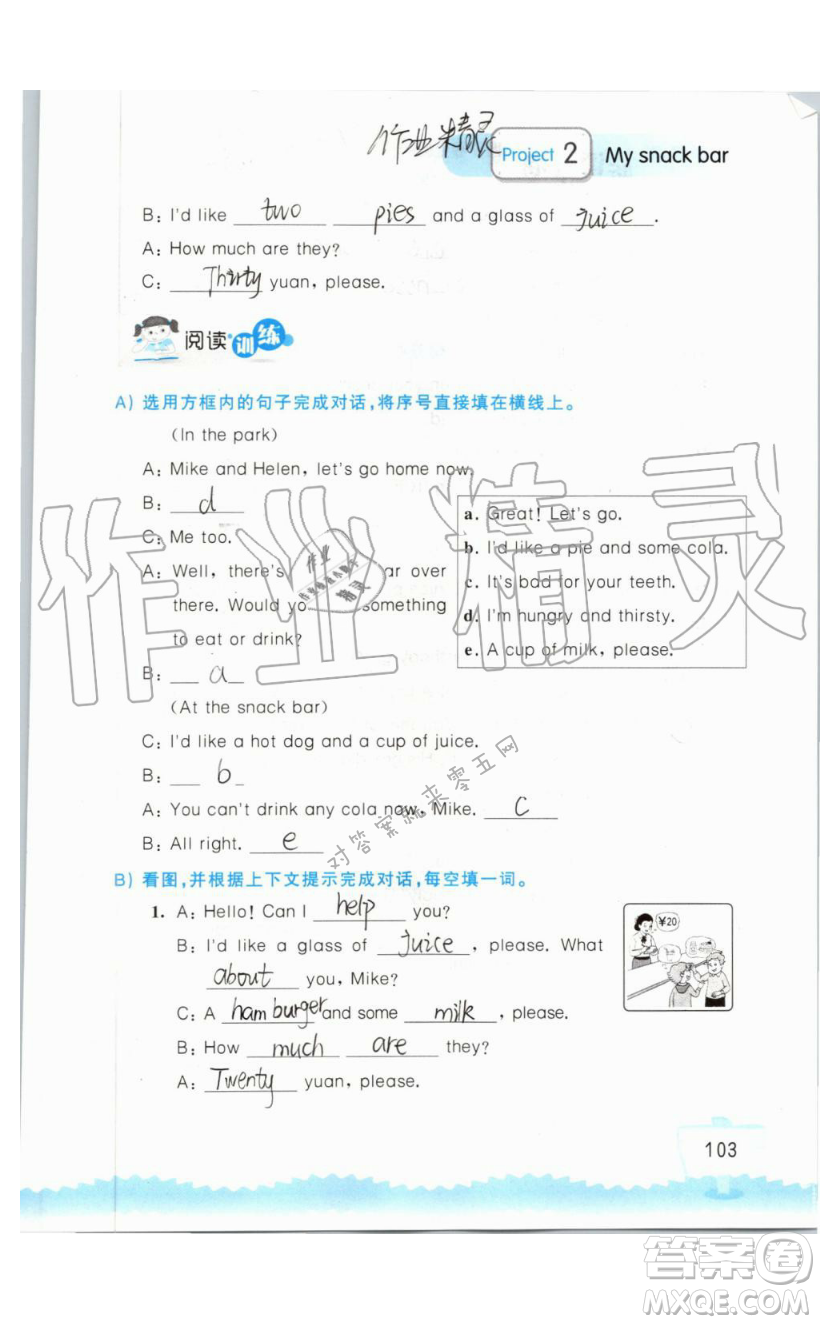 作业精灵
Project 2 My snack bar
B: I'd like two pies and a glass of juice.
A: How much are they?
C: Thirty yuan, please.
阅读训练
A) 选用方框内的句子完成对话,将序号直接填在横线上。
(In the park)
A: Mike and Helen, let's go home now.
B: d
C: Me too.
A: Well, there's ar over
there. Would yo something
to eat or drink?
B: a
a. Great! Let's go.
b. I'd like a pie and some cola.
c. It's bad for your teeth.
d. I'm hungry and thirsty.
e. A cup of milk, please.
(At the snack bar)
C: I'd like a hot dog and a cup of juice.
B: b
A: You can't drink any cola now, Mike. c
B: All right. e
B) 看图,并根据上下文提示完成对话,每空填一词。
1. A: Hello! Can I help you?
B: I'd like a glass of juice, please. What
about you, Mike?
C: A hamburger and some milk, please.
B: How much are they?
A: Twenty yuan, please.
¥20
103
作业精灵
作业
精灵
对答案就来零五网
答案卷
MXQE.COM